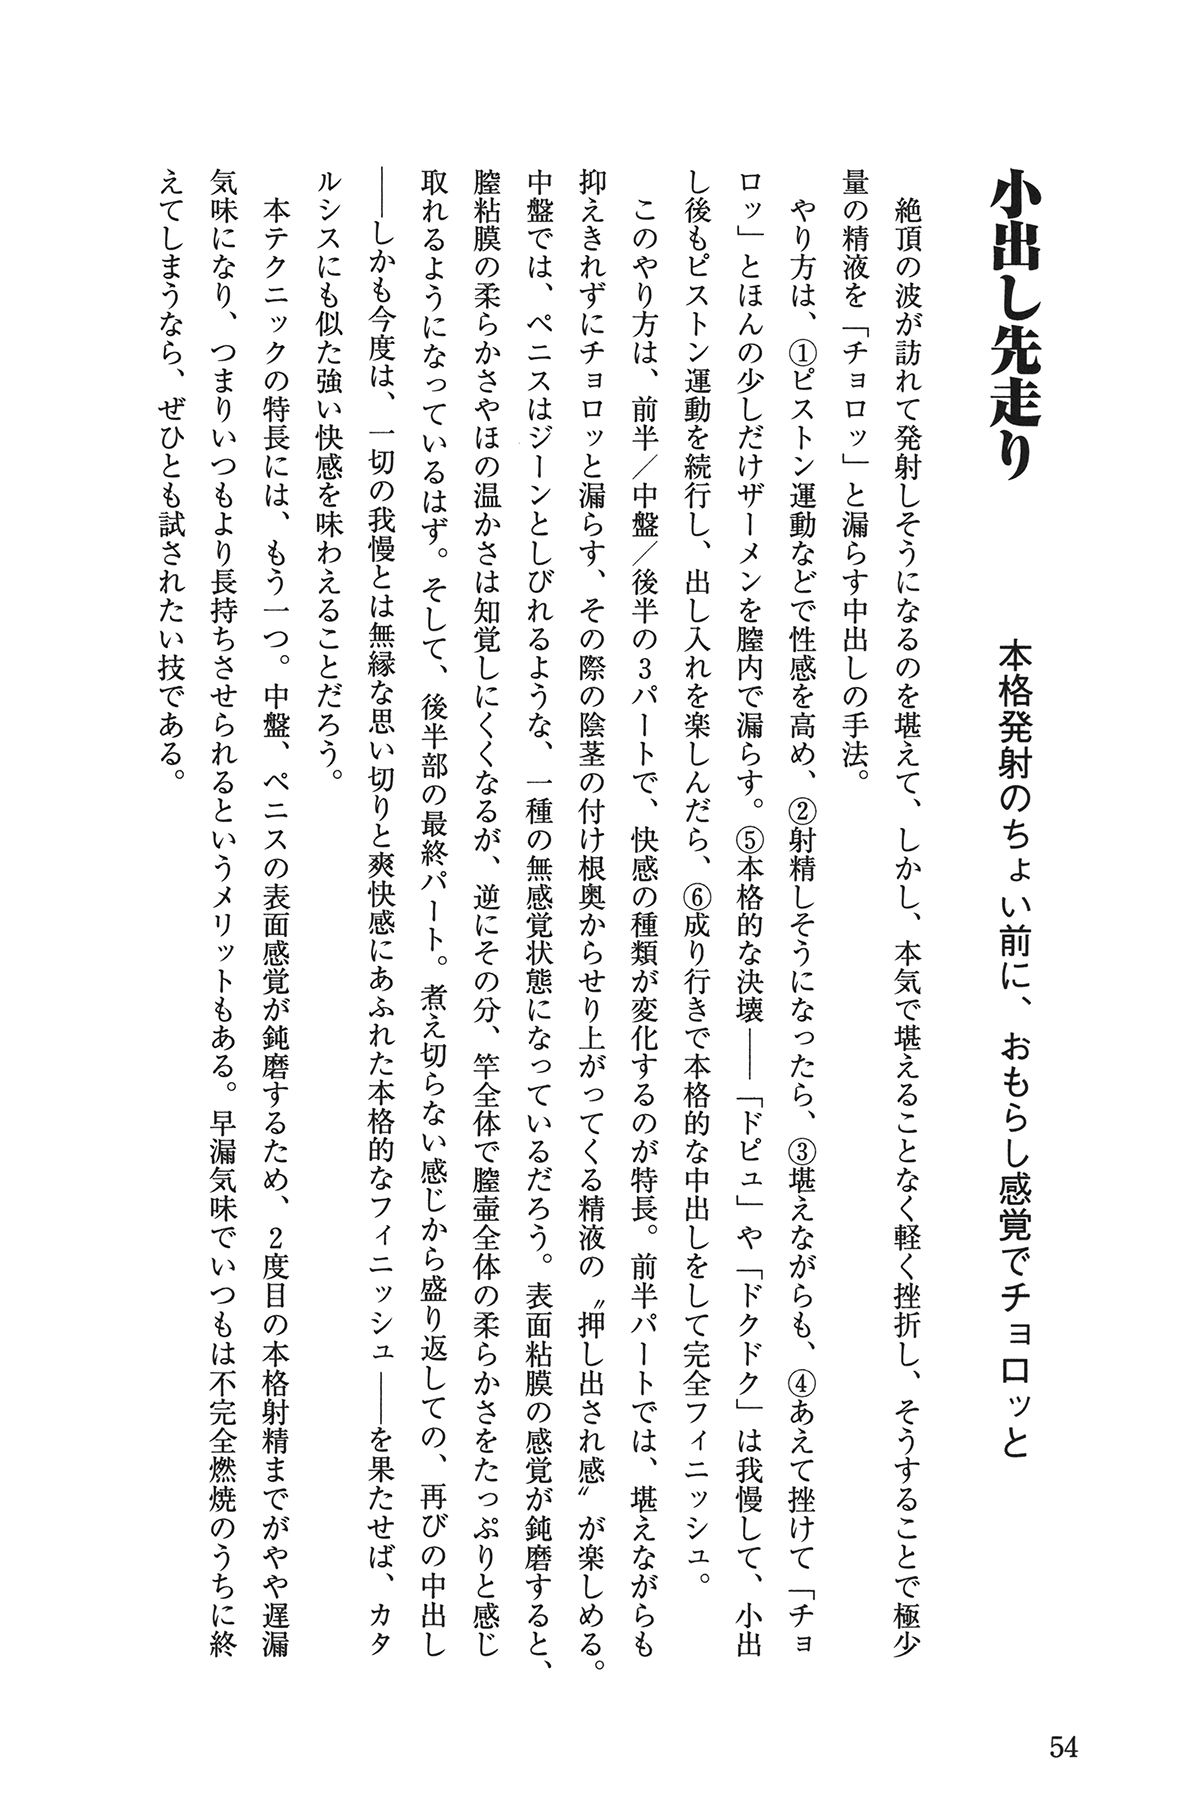 小出し先走り
本格発射のちょい前に、おもらし感覚でチョロッと
絶頂の波が訪れて発射しそうになるのを堪えて、しかし、本気で堪えることなく軽く挫折し、そうすることで極少
量の精液を「チョロッ」と漏らす中出しの手法。
やり方は、①ピストン運動などで性感を高め、②射精しそうになったら、③堪えながらも、④あえて挫けて「チョ
ロッ」とほんの少しだけザーメンを膣内で漏らす。⑤本格的な決壊――「ドピュ」や「ドクドク」は我慢して、小出
し後もピストン運動を続行し、出し入れを楽しんだら、⑥成り行きで本格的な中出しをして完全フィニッシュ。
このやり方は、前半／中盤／後半の3パートで、快感の種類が変化するのが特長。前半パートでは、堪えながらも
抑えきれずにチョロッと漏らす、その際の陰茎の付け根奥からせり上がってくる精液の〝押し出され感〟が楽しめる。
中盤では、ペニスはジーンとしびれるような、一種の無感覚状態になっているだろう。表面粘膜の感覚が鈍磨すると、
膣粘膜の柔らかさやほの温かさは知覚しにくくなるが、逆にその分、竿全体で膣壷全体の柔らかさをたっぷりと感じ
取れるようになっているはず。そして、後半部の最終パート。煮え切らない感じから盛り返しての、再びの中出し
――しかも今度は、一切の我慢とは無縁な思い切りと爽快感にあふれた本格的なフィニッシュ――を果たせば、カタ
ルシスにも似た強い快感を味わえることだろう。
本テクニックの特長には、もう一つ。中盤、ペニスの表面感覚が鈍磨するため、2度目の本格射精までがやや遅漏
気味になり、つまりいつもより長持ちさせられるというメリットもある。早漏気味でいつもは不完全燃焼のうちに終
えてしまうなら、ぜひとも試されたい技である。
54